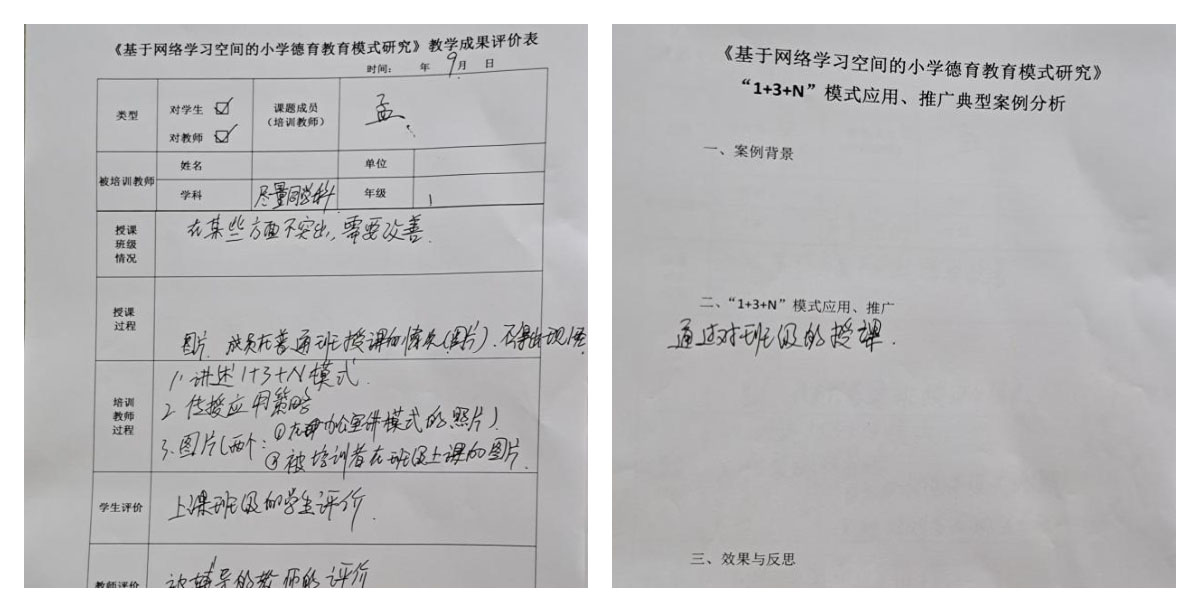 《基于网络学习空间的小学德育教育模式研究》教学成果评价表
时间： 年 9月 日
类型
对学生 ☑
对教师 ☑
课题成员
（培训教师）
孟
被培训教师
姓名
单位
学科
尽量同学科
年级
1
授课
班级
情况
在某些方面不突出，需要改善.
授课
过程
图片. 成员在普通班授课的情况(图片). 不得出现
培训
教师
过程
1. 讲述1+3+N模式.
2. 传授应用策略
3. 图片(两个: ①在办公室讲模式的照片)
②被培训者在班级上课的图片.
学生评价
上课班级的学生评价.
教师评价
被辅导的教师的评价
《基于网络学习空间的小学德育教育模式研究》
“1+3+N”模式应用、推广典型案例分析
一、案例背景
二、“1+3+N”模式应用、推广
通过对班级的授课.
三、效果与反思